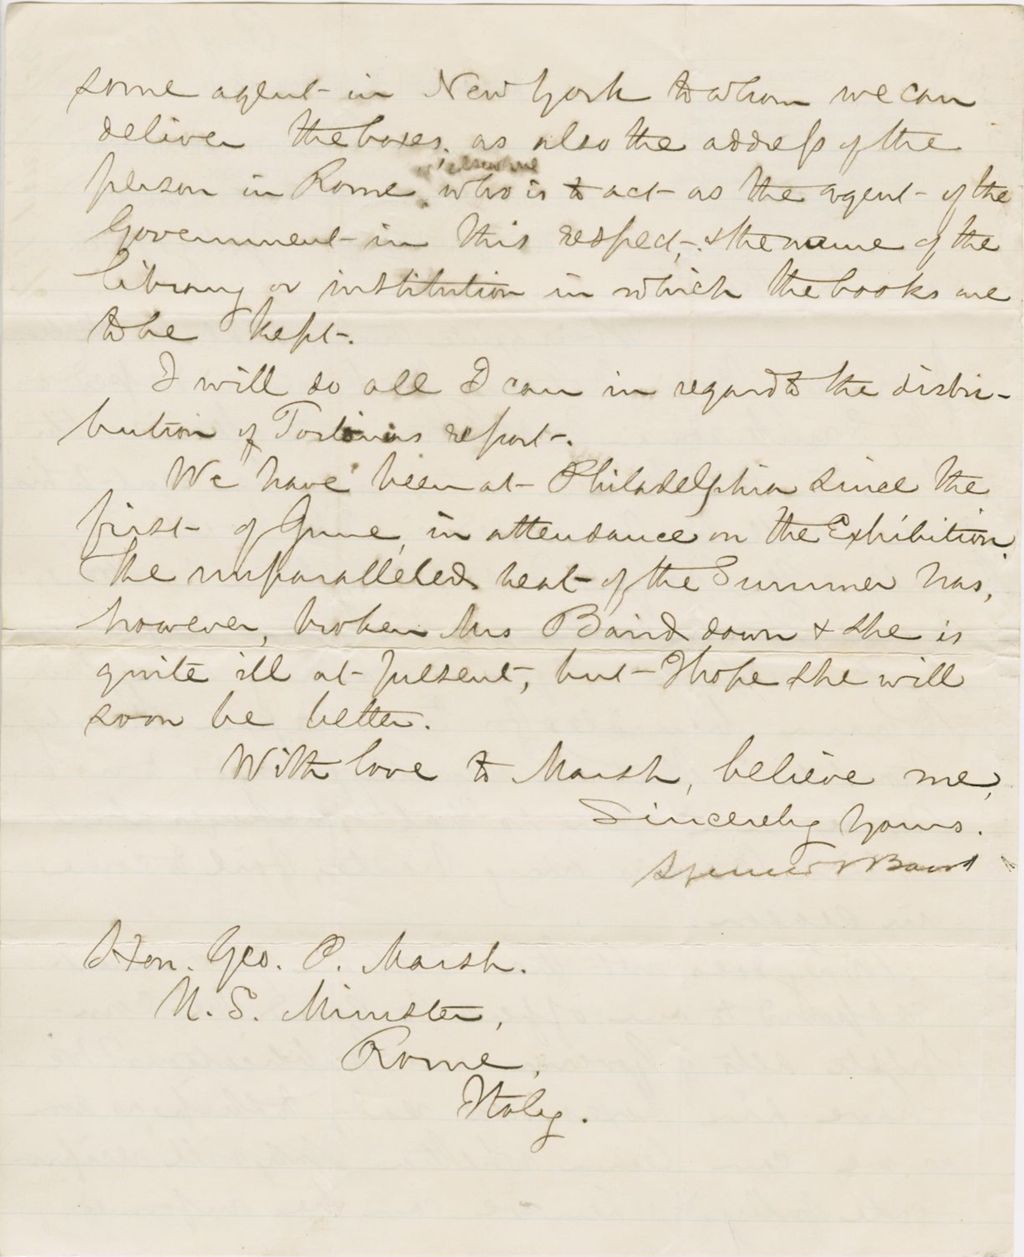 some agent in New York to whom we can
deliver the boxes, as also the address of the
or elsewhere
person in Rome who is to act as the agent of the
Government in this respect, & the name of the
library or institution in which the books are
to be kept.
I will do all I can in regard to the distri-
bution of report.
We have been at Philadelphia since the
first of June, in attendance on the Exhibition.
The unparalleled heat of the Summer has,
however, broken Mrs Baird down & she is
quite ill at present, but I hope she will
soon be better.
With love to Marsh, believe me,
Sincerely yours.
Spencer F Baird
Hon. Geo. P. Marsh.
U. S. Minister,
Rome,
Italy.